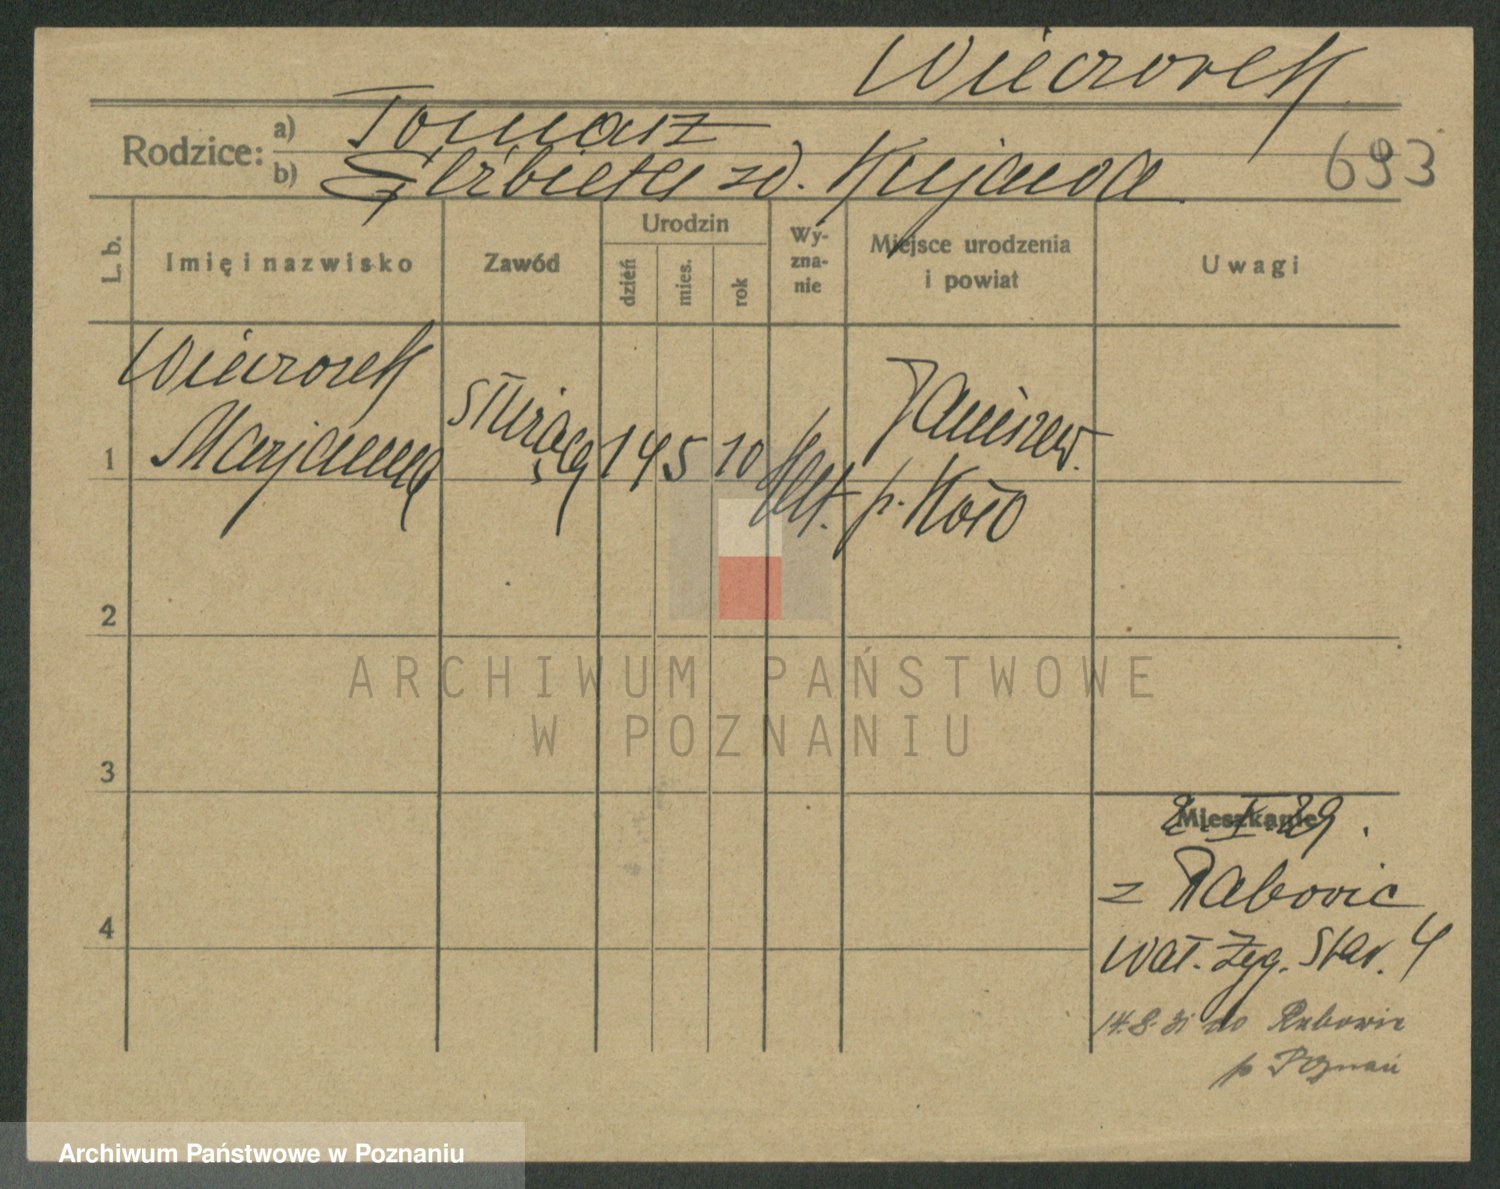 Wieczorek
Rodzice: a) Tomasz
b) Elżbieta zd. Kujawa
693
L. b. Imię i nazwisko Zawód Urodzin dzień mies. rok Wy-zna-nie Miejsce urodzenia i powiat Uwagi
Wieczorek
Marjanna
służąca
1 14 5 10 kat. Janiszew.
p. Koło
2
3
4
Mieszkanie
2. I. 29.
z Rabowic
Wał. Zyg. Star. 4
14.8.31 do Rabowic
p Poznań
ARCHIWUM PAŃSTWOWE
W POZNANIU
Archiwum Państwowe w Poznaniu